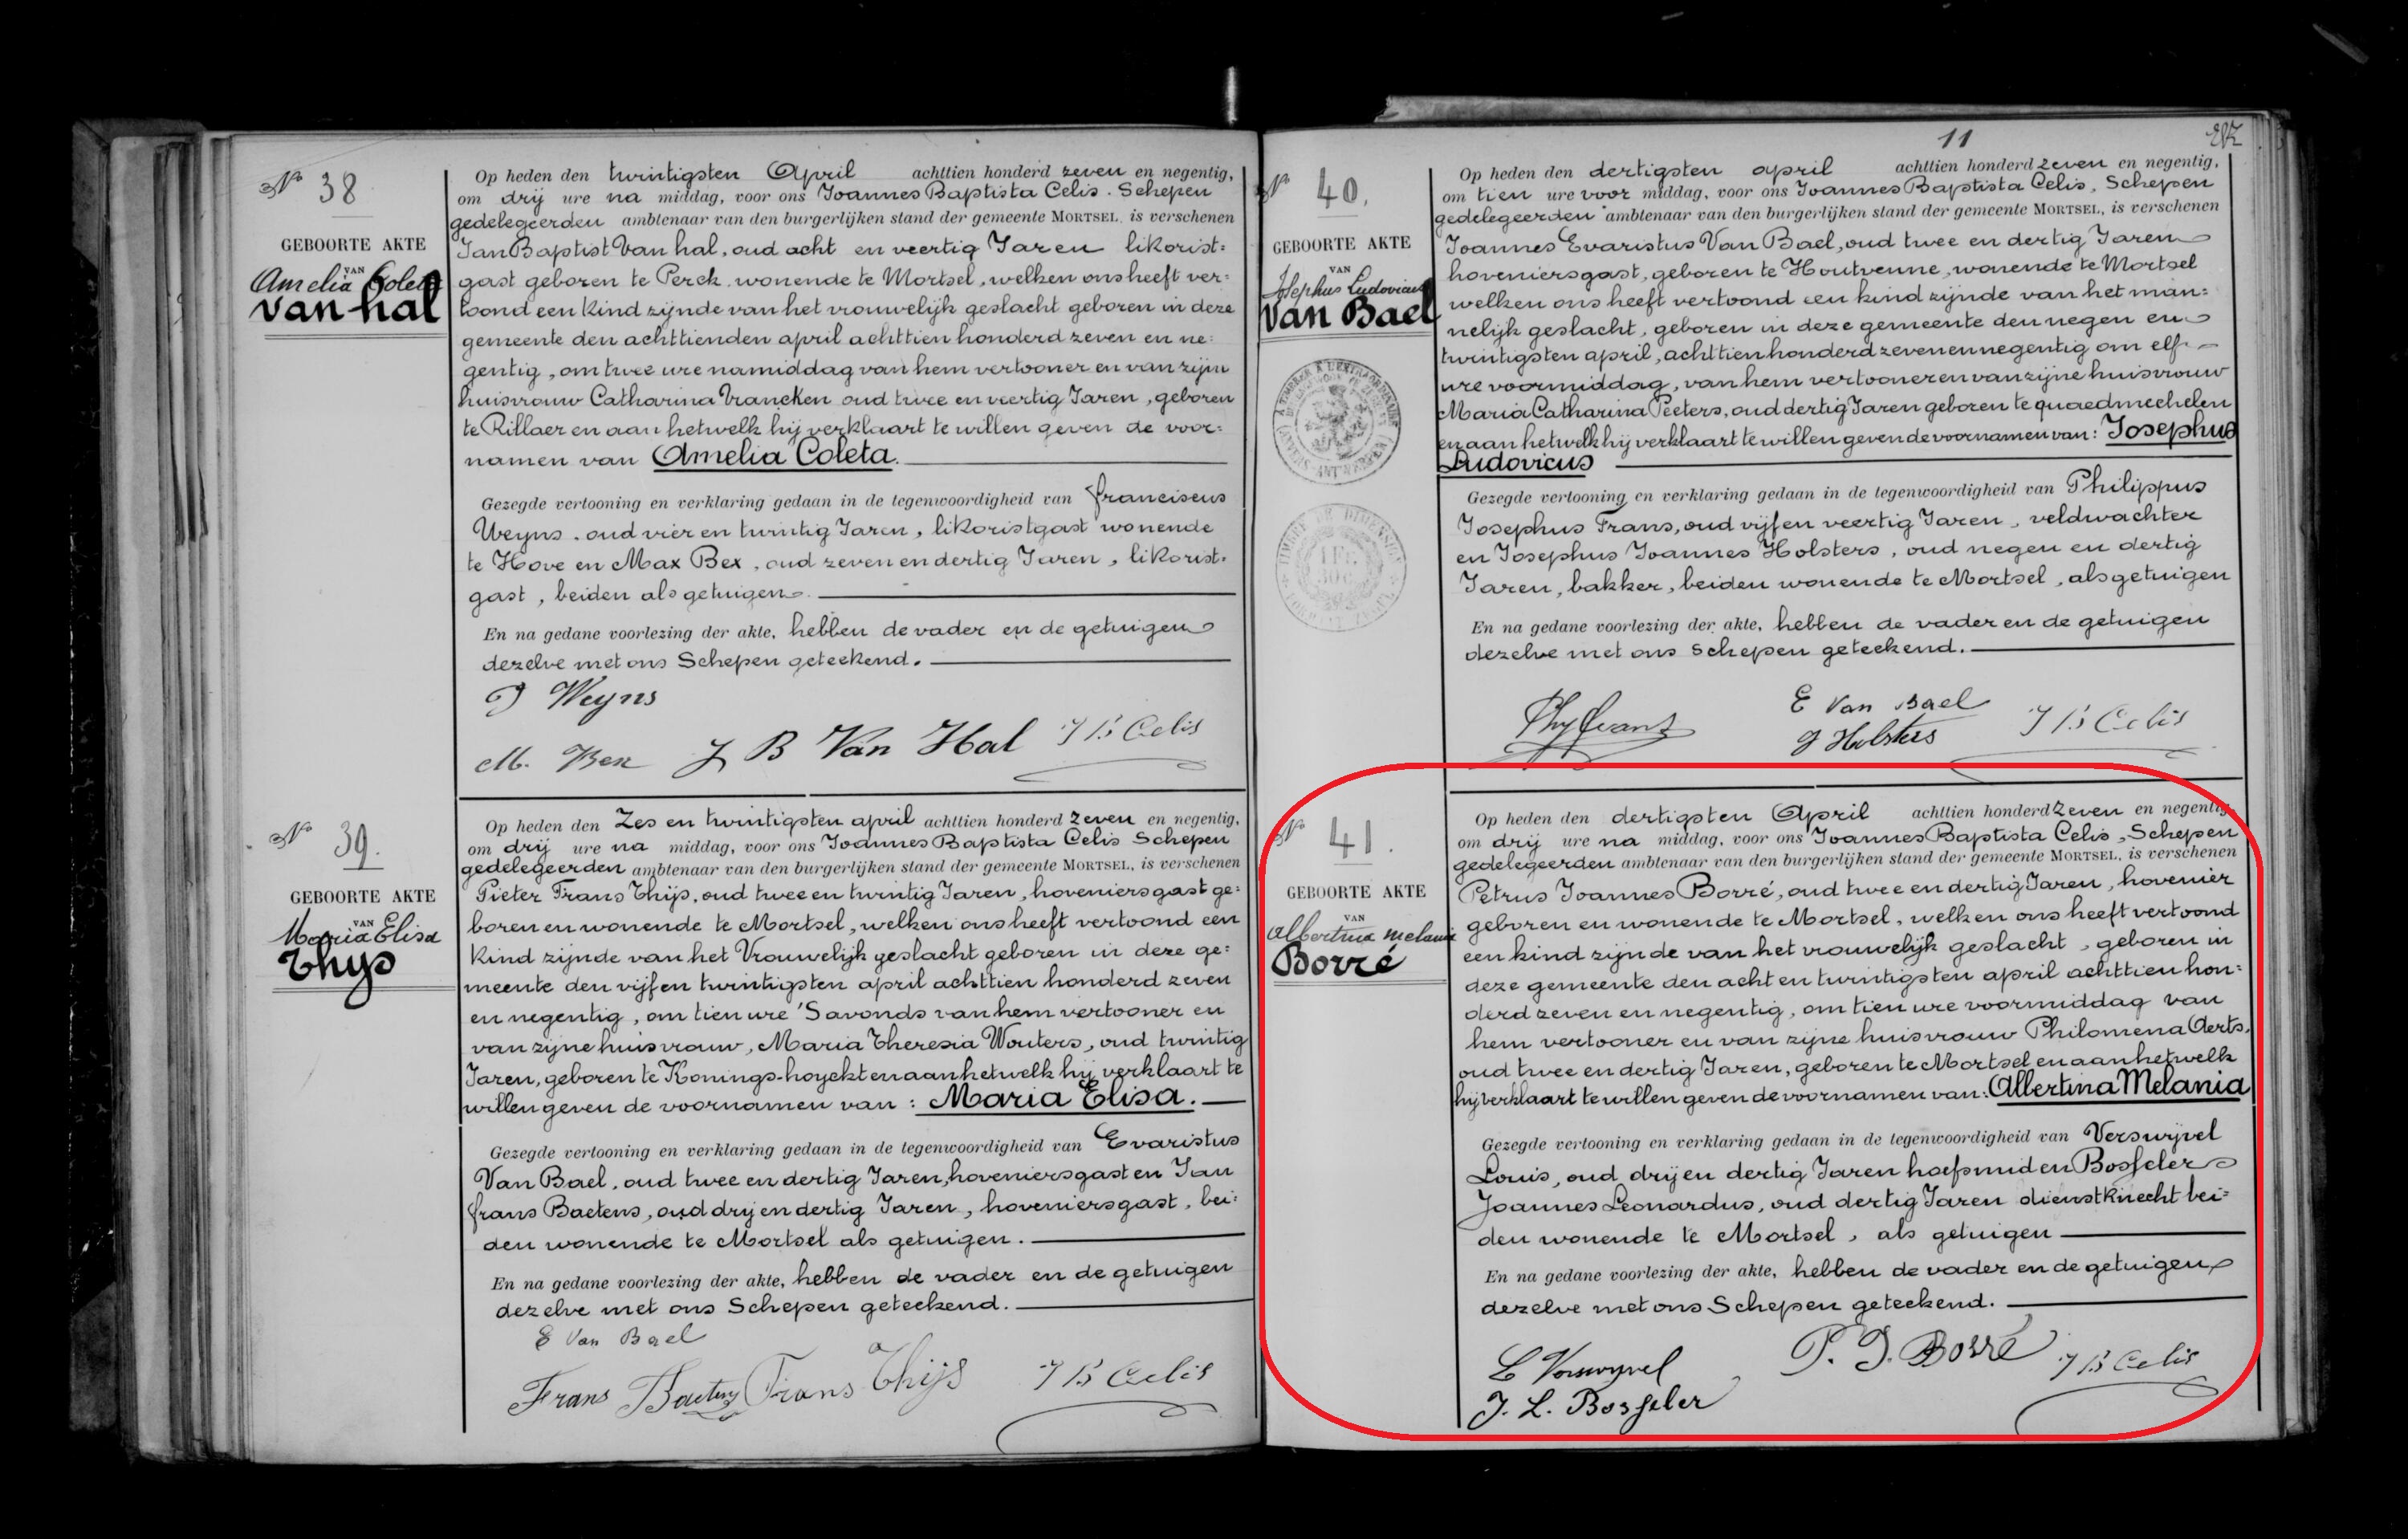 Nº 38
GEBOORTE AKTE
VAN
Amelia Coleta
van hal
Op heden den twintigsten April achttien honderd zeven en negentig,
om drij ure na middag, voor ons Joannes Baptista Celis. Schepen
gedelegeerden ambtenaar van den burgerlijken stand der gemeente MORTSEL, is verschenen
Jan Baptist Van hal, oud acht en veertig Jaren likorist=
gast geboren te Perck wonende te Mortsel, welken ons heeft ver=
toond een kind zijnde van het vrouwelijk geslacht geboren in deze
gemeente den achttienden april achttien honderd zeven en ne=
gentig, om twee ure namiddag van hem vertooner en van zijn
huisvrouw Catharina Vrancken oud twee en veertig Jaren, geboren
te Rillaer en aan hetwelk hij verklaart te willen geven de voor=
namen van Amelia Coleta.
Gezegde vertooning en verklaring gedaan in de tegenwoordigheid van franciscus
Weyns. oud vier en twintig Jaren, likoristgast wonende
te Hove en Max Bex, oud zeven en dertig Jaren, likorist=
gast, beiden als getuigen.
En na gedane voorlezing der akte, hebben de vader en de getuigen
dezelve met ons Schepen geteekend.
Weyns
M. Bex J B Van Hal J B Celis
Nº 39.
GEBOORTE AKTE
VAN
Maria Elisa
Thys
Op heden den Zes en twintigsten april achttien honderd zeven en negentig,
om drij ure na middag, voor ons Joannes Baptista Celis Schepen
gedelegeerden ambtenaar van den burgerlijken stand der gemeente MORTSEL, is verschenen
Pieter Frans Thijs, oud twee en twintig Jaren, hoveniersgast ge=
boren en wonende te Mortsel, welken ons heeft vertoond een
kind zijnde van het Vrouwelijk geslacht geboren in deze ge=
meente den vijf en twintigsten april achttien honderd zeven
en negentig, om tien ure 'Savonds van hem vertooner en
van zijne huisvrouw, Maria Theresia Wouters, oud twintig
Jaren, geboren te Konings-hoyckt en aan hetwelk hij verklaart te
willen geven de voornamen van: Maria Elisa.
Gezegde vertooning en verklaring gedaan in de tegenwoordigheid van Evaristus
Van Bael, oud twee en dertig Jaren, hoveniersgast en Jan
frans Baetens, oud drij en dertig Jaren, hoveniersgast, bei=
den wonende te Mortsel als getuigen.
En na gedane voorlezing der akte, hebben de vader en de getuigen
dezelve met ons Schepen geteekend.
E Van Bael
Frans Baetens Frans Thijs J B Celis
11
Nº 40.
GEBOORTE AKTE
VAN
Josephus Ludovicus
Van Bael
Op heden den dertigsten april achttien honderd zeven en negentig,
om tien ure voor middag, voor ons Joannes Baptista Celis, Schepen
gedelegeerden ambtenaar van den burgerlijken stand der gemeente MORTSEL, is verschenen
Joannes Evaristus Van Bael, oud twee en dertig Jaren
hoveniersgast, geboren te Houtvenne, wonende te Mortsel
welken ons heeft vertoond een kind zijnde van het man=
nelijk geslacht, geboren in deze gemeente den negen en
twintigsten april, achttien honderd zeven en negentig om elf
ure voormiddag, van hem vertooner en van zijne huisvrouw
Maria Catharina Peeters, oud dertig Jaren geboren te quaedmechelen
en aan hetwelk hij verklaart te willen geven de voornamen van: Josephus
Ludovicus
Gezegde vertooning en verklaring gedaan in de tegenwoordigheid van Philippus
Josephus Frans, oud vijf en veertig Jaren, veldwachter
en Josephus Joannes Holsters, oud negen en dertig
Jaren, bakker, beiden wonende te Mortsel, als getuigen
En na gedane voorlezing der akte, hebben de vader en de getuigen
dezelve met ons Schepen geteekend.
E Van Bael
J Holsters J B Celis
Nº 41.
GEBOORTE AKTE
VAN
Albertina Melania
Borré
Op heden den dertigsten April achttien honderd zeven en negentig,
om drij ure na middag, voor ons Joannes Baptista Celis, Schepen
gedelegeerden ambtenaar van den burgerlijken stand der gemeente MORTSEL, is verschenen
Petrus Joannes Borré, oud twee en dertig Jaren, hovenier
geboren en wonende te Mortsel, welken ons heeft vertoond
een kind zijnde van het vrouwelijk geslacht, geboren in
deze gemeente den acht en twintigsten april achttien hon=
derd zeven en negentig, om tien ure voormiddag van
hem vertooner en van zijne huisvrouw Philomena Aerts,
oud twee en dertig Jaren, geboren te Mortsel en aan hetwelk
hij verklaart te willen geven de voornamen van: Albertina Melania
Gezegde vertooning en verklaring gedaan in de tegenwoordigheid van Verswijvel
Louis, oud drij en dertig Jaren hoefsmid en Bosseler
Joannes Leonardus, oud dertig Jaren dienstknecht bei=
den wonende te Mortsel, als getuigen
En na gedane voorlezing der akte, hebben de vader en de getuigen
dezelve met ons Schepen geteekend.
L Verswyvel P. J. Borré J B Celis
J. L. Bosseler